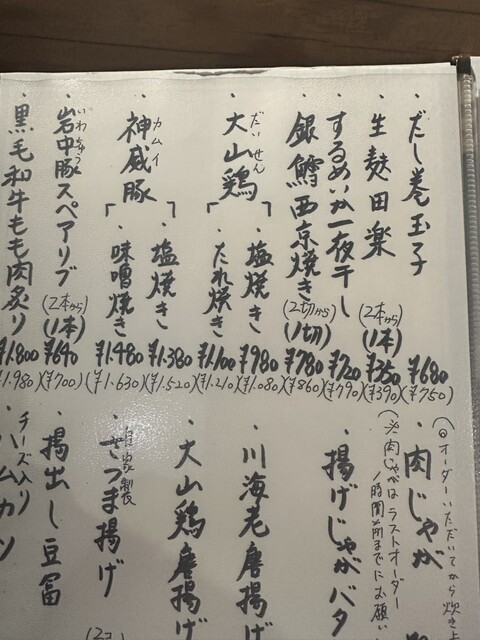 ・だし巻玉子 ¥680 (¥750)
・生麩田楽 (2本から) (1本) ¥350 (¥390)
・するめいか一夜干し ¥720 (¥790)
・銀鱈西京焼き (2切から) (1切) ¥780 (¥860)
・大山鶏 だいせん
塩焼き ¥980 (¥1.080)
たれ焼き ¥1.100 (¥1.210)
・神威豚 カムイ
塩焼き ¥1.380 (¥1.520)
味噌焼き ¥1.480 (¥1.630)
・岩中豚スペアリブ いわちゅう (2本から) (1本) ¥640 (¥700)
・黒毛和牛もも肉炙り ¥1.800 (¥1.980)
(◎オーダーいただいてから炊き
・肉じゃが
(※肉じゃがはラストオーダー
1時間前までにお願い
・揚げじゃがバタ
・川海老唐揚げ
・大山鶏唐揚げ
・自家製さつま揚げ
・揚出し豆冨
チーズ入り
ハムカツ